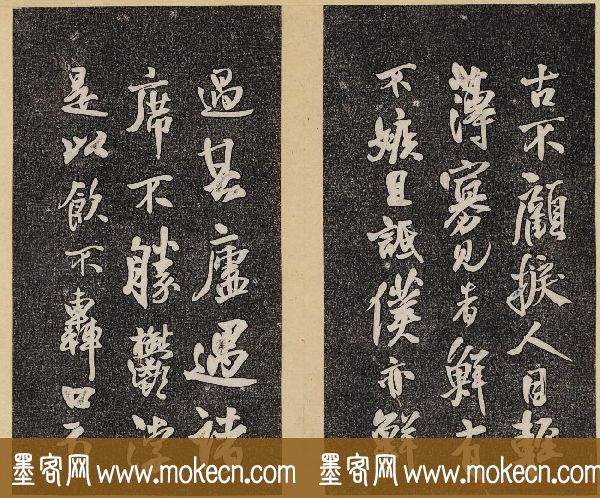 古不顧捩人目輕
薄寡見者鮮有
不嫉且詆僕亦鮮
過其廬遇諸
席不勝鬱
是以飲不轟口
墨客网 www.mokecn.com
墨客网 www.mokecn.com